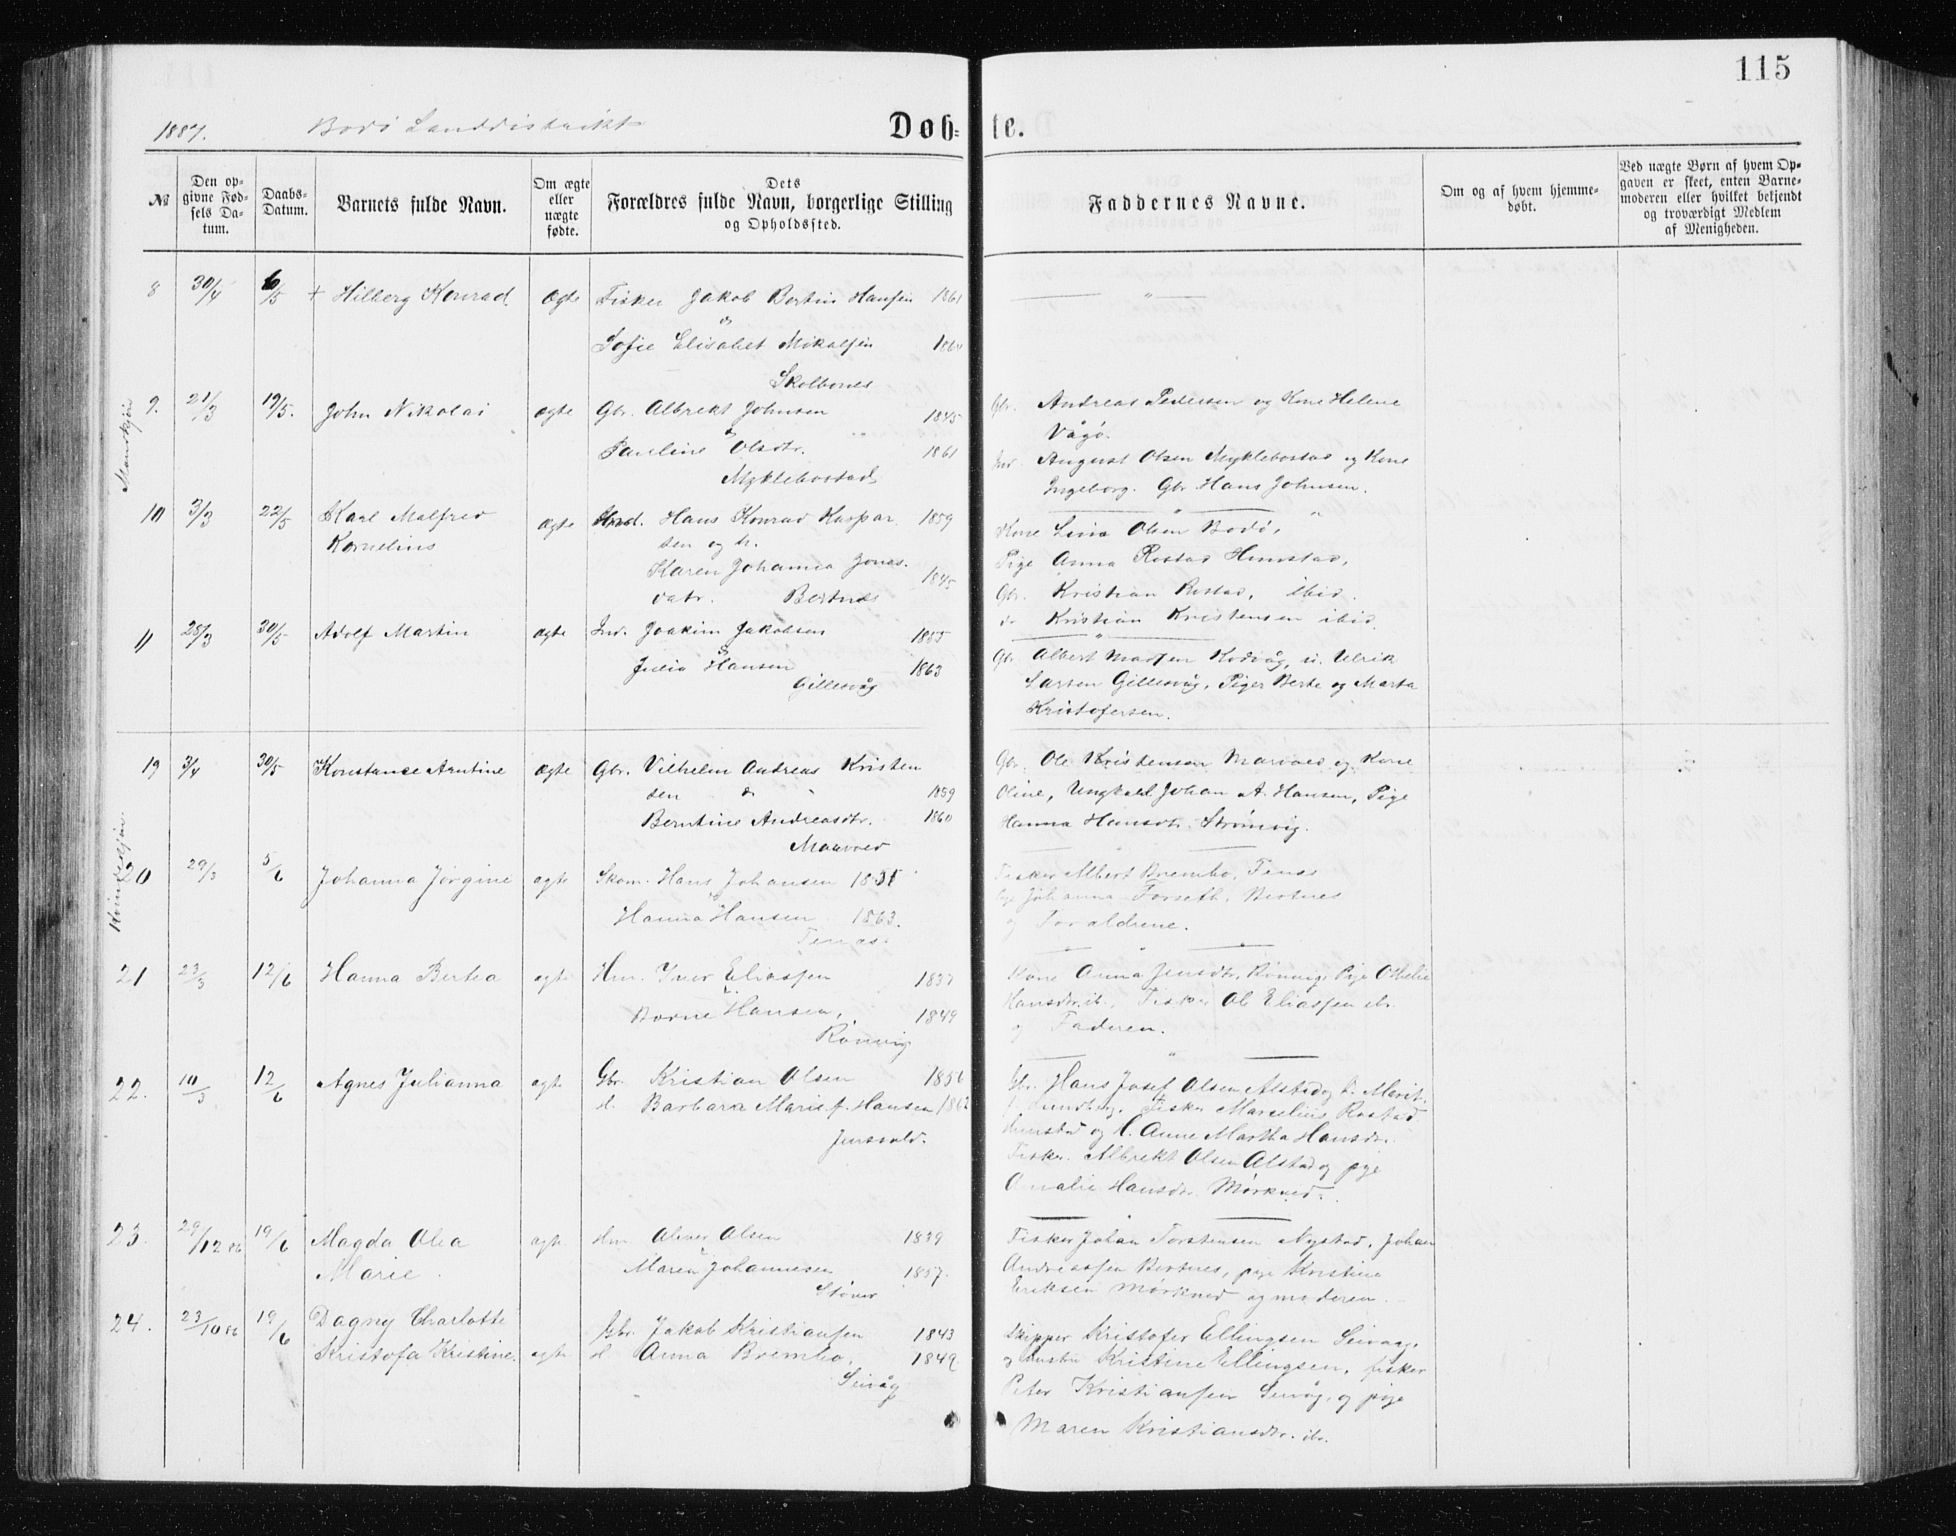 115
1887. Bodö Landdistrikt Döb- te.
№ Den opgivne Fødsels Datum. Daabs-Datum. Barnets fulde Navn. Om ægte eller uægte fødte. Dets Forældres fulde Navn, borgerlige Stilling og Opholdssted. Faddernes Navne. Om og af hvem hjemmedøbt. Ved uægte Børn af hvem Opgaven er skeet, enten Barnemoderen eller hvilket bekjendt og troværdigt Medlem af Menigheden.
Mandkjön
8 30/4 6/5 + Hilberg Konrad. Ægte Fisker Jakob Bertin Hansen 1861
&
Sofie Elisabet Mikalsen
9. 21/3 19/5. John Nikolai ægte Gbr. Albrekt Johnsen 1845
&
Pauline Olsdtr. 1861
Myklebostad
Gbr. Andreas Pedersen og Kone Helene
Vågö.
Ind. August Olsen Myklebostad og Kone
Ingeborg. Gbr Hans Johnsen.
10 3/3 22/5 Karl Malfred Ægte Hans Konrad Kaspar 1859
Kornelius sen og h.
Karen Johanna Jonas. 1845
datr. Bertnes
Kone Lina Olsen Bodö,
Pige Anna Rostad Hunstad,
Gbr. Kristian Rostad, ibid.
do Kristian Kristensen ibid.
11 28/3 30/5 Adolf Martin ægte Ind. Joakim Jakobsen 1855
&
Julia Hansen 1863
Gillesvåg
Gbr. Albert Madsen Kodvåg, u. Ulrik
Larsen Gillesvåg, Piger Berte og Marta
Kristofersen.
Kvindekjön
19 3/4 30/5 Konstance Arntine Ægte Gbr. Vilhelm Andreas Kristen
sen & 1859
Berntine Andreasdtr. 1860
Gbr. Ole Kristensen og Kone
Oline, Ungkarl Johan A. Hansen, Pige
Hanna Hansdtr. Strömvig.
20 29/3 5/6 Johanna Jörgine ægte Skom. Hans Johansen
Hanna Hansen 1863.
Fisker Albert Brembo,
Johanna Forseth, Bertnes
og Foraldrene.
21 23/3 12/6 Hanna Bertea ægte Hm. Iver Eliassen 1837
Hansen, 1849
Rönvig
Kone Anna Jensdtr. Rönvig, Pige Othelie
Hansdtr. ib., Fisker Ole Eliassen ib.
og Faderen.
22. 10/3 12/6 Agnes Julianna ægte Gbr. Kristian Olsen 1856
Barbara Marie f. Hansen
Jensvold.
Gbr. Hans Josef Olsen Alstad og h. Marit
Fisker Marselius Rostad
Hunstad og H. Anne Martha Hansdr.
Fisker Albrekt Olsen Alstad og pige
Amalie Hansdr. Mörkved.
23. 29/12 86 19/6 Magda Olea ægte Hm Oliver Olsen 1839
Marie. Maren Johannesen 1857.
Stöver
Fisker Johan Torstensen Nystad, Johan
Andreassen Bertnes, pige Kristine
Eriksen Mörkved og moderen.
24. 23/10 86 19/6 Dagny Charlotte Gbr. Jakob Kristiansen 1843
Kristofa Kristine. ægte Anna Brembo, 1849
Seivåg
Skipper Kristofer Ellingsen Seivaag,
og hustru Kristine Ellingsen, fisker
Peter Kristiansen Seivåg, og pige
Maren Kristiansdtr. ib.